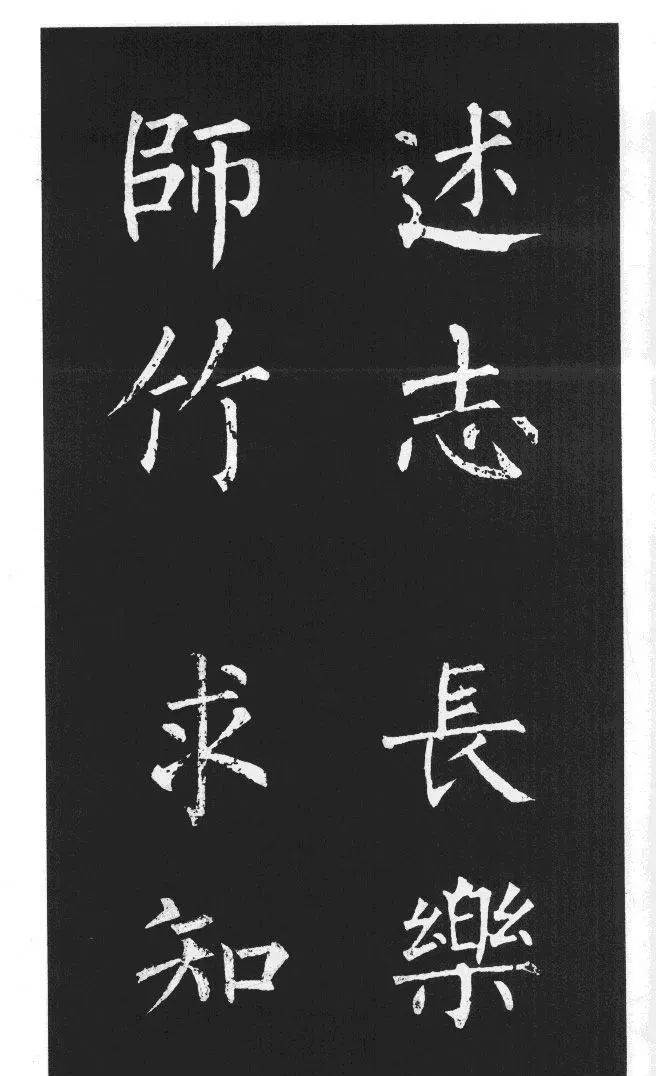 述志長樂
師竹求知